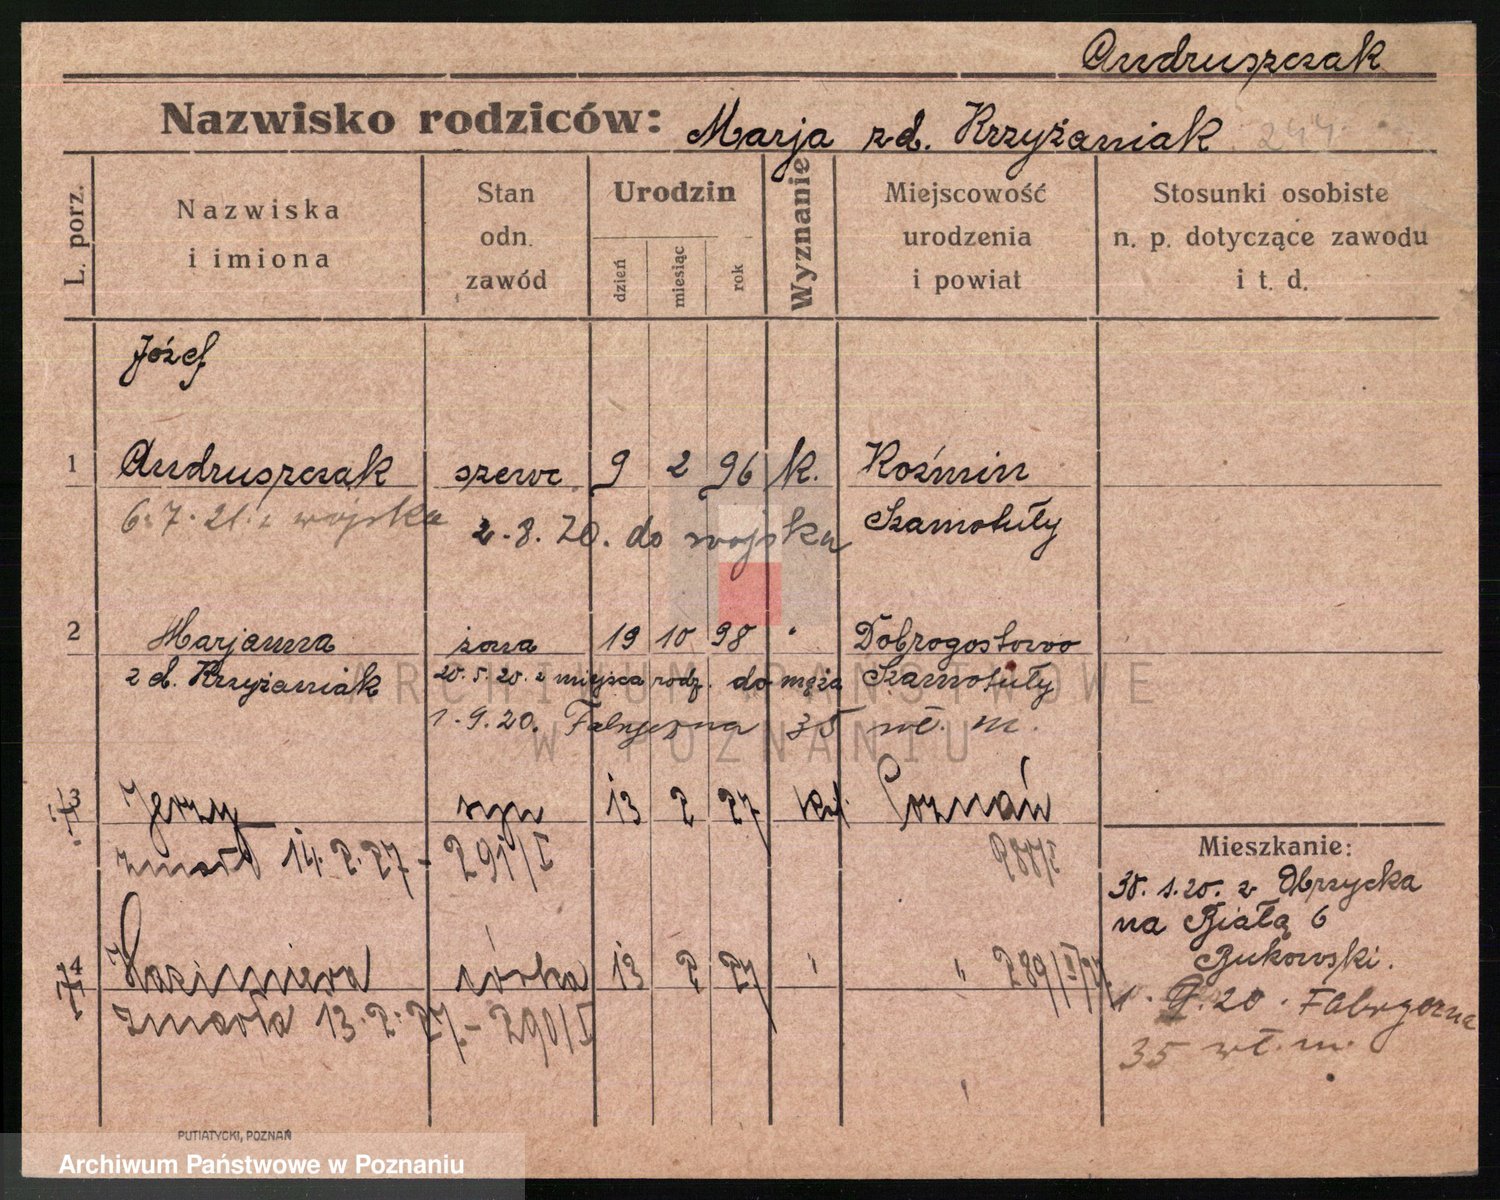 Andruszczak
Nazwisko rodziców: Marja zd. Krzyżaniak 244
L. porz.
Nazwiska
i imiona
Stan
odn.
zawód
Urodzin
dzień
miesiąc
rok
Wyznanie
Miejscowość
urodzenia
i powiat
Stosunki osobiste
n. p. dotyczące zawodu
i t. d.
Józef
1 Andruszczak szewc 9 2 96 k. Koźmin
6.7.21. z wojska 2.8.20. do wojska Szamotuły
2 Marjanna żona 19 10 98 " Dobrogostowo
zd. Krzyżaniak 20.5.20. z miejsca rodz. do męża Szamotuły
1.9.20. 35 wł. m.
3 Jerzy syn 13 2 27 kat. Poznań
zmarł 14.2.27 - 291/I 288/I
4 Kazimiera córka 13 2 27 " " 289/I/27.
zmarła 13.2.27. - 290/I
Mieszkanie:
30.1.20. z Obrzycka
na Białą 6
Bukowski.
1.9.20.
35 wł. m.
PUTIATYCKI, POZNAŃ
ARCHIWUM PAŃSTWOWE
W POZNANIU
Archiwum Państwowe w Poznaniu